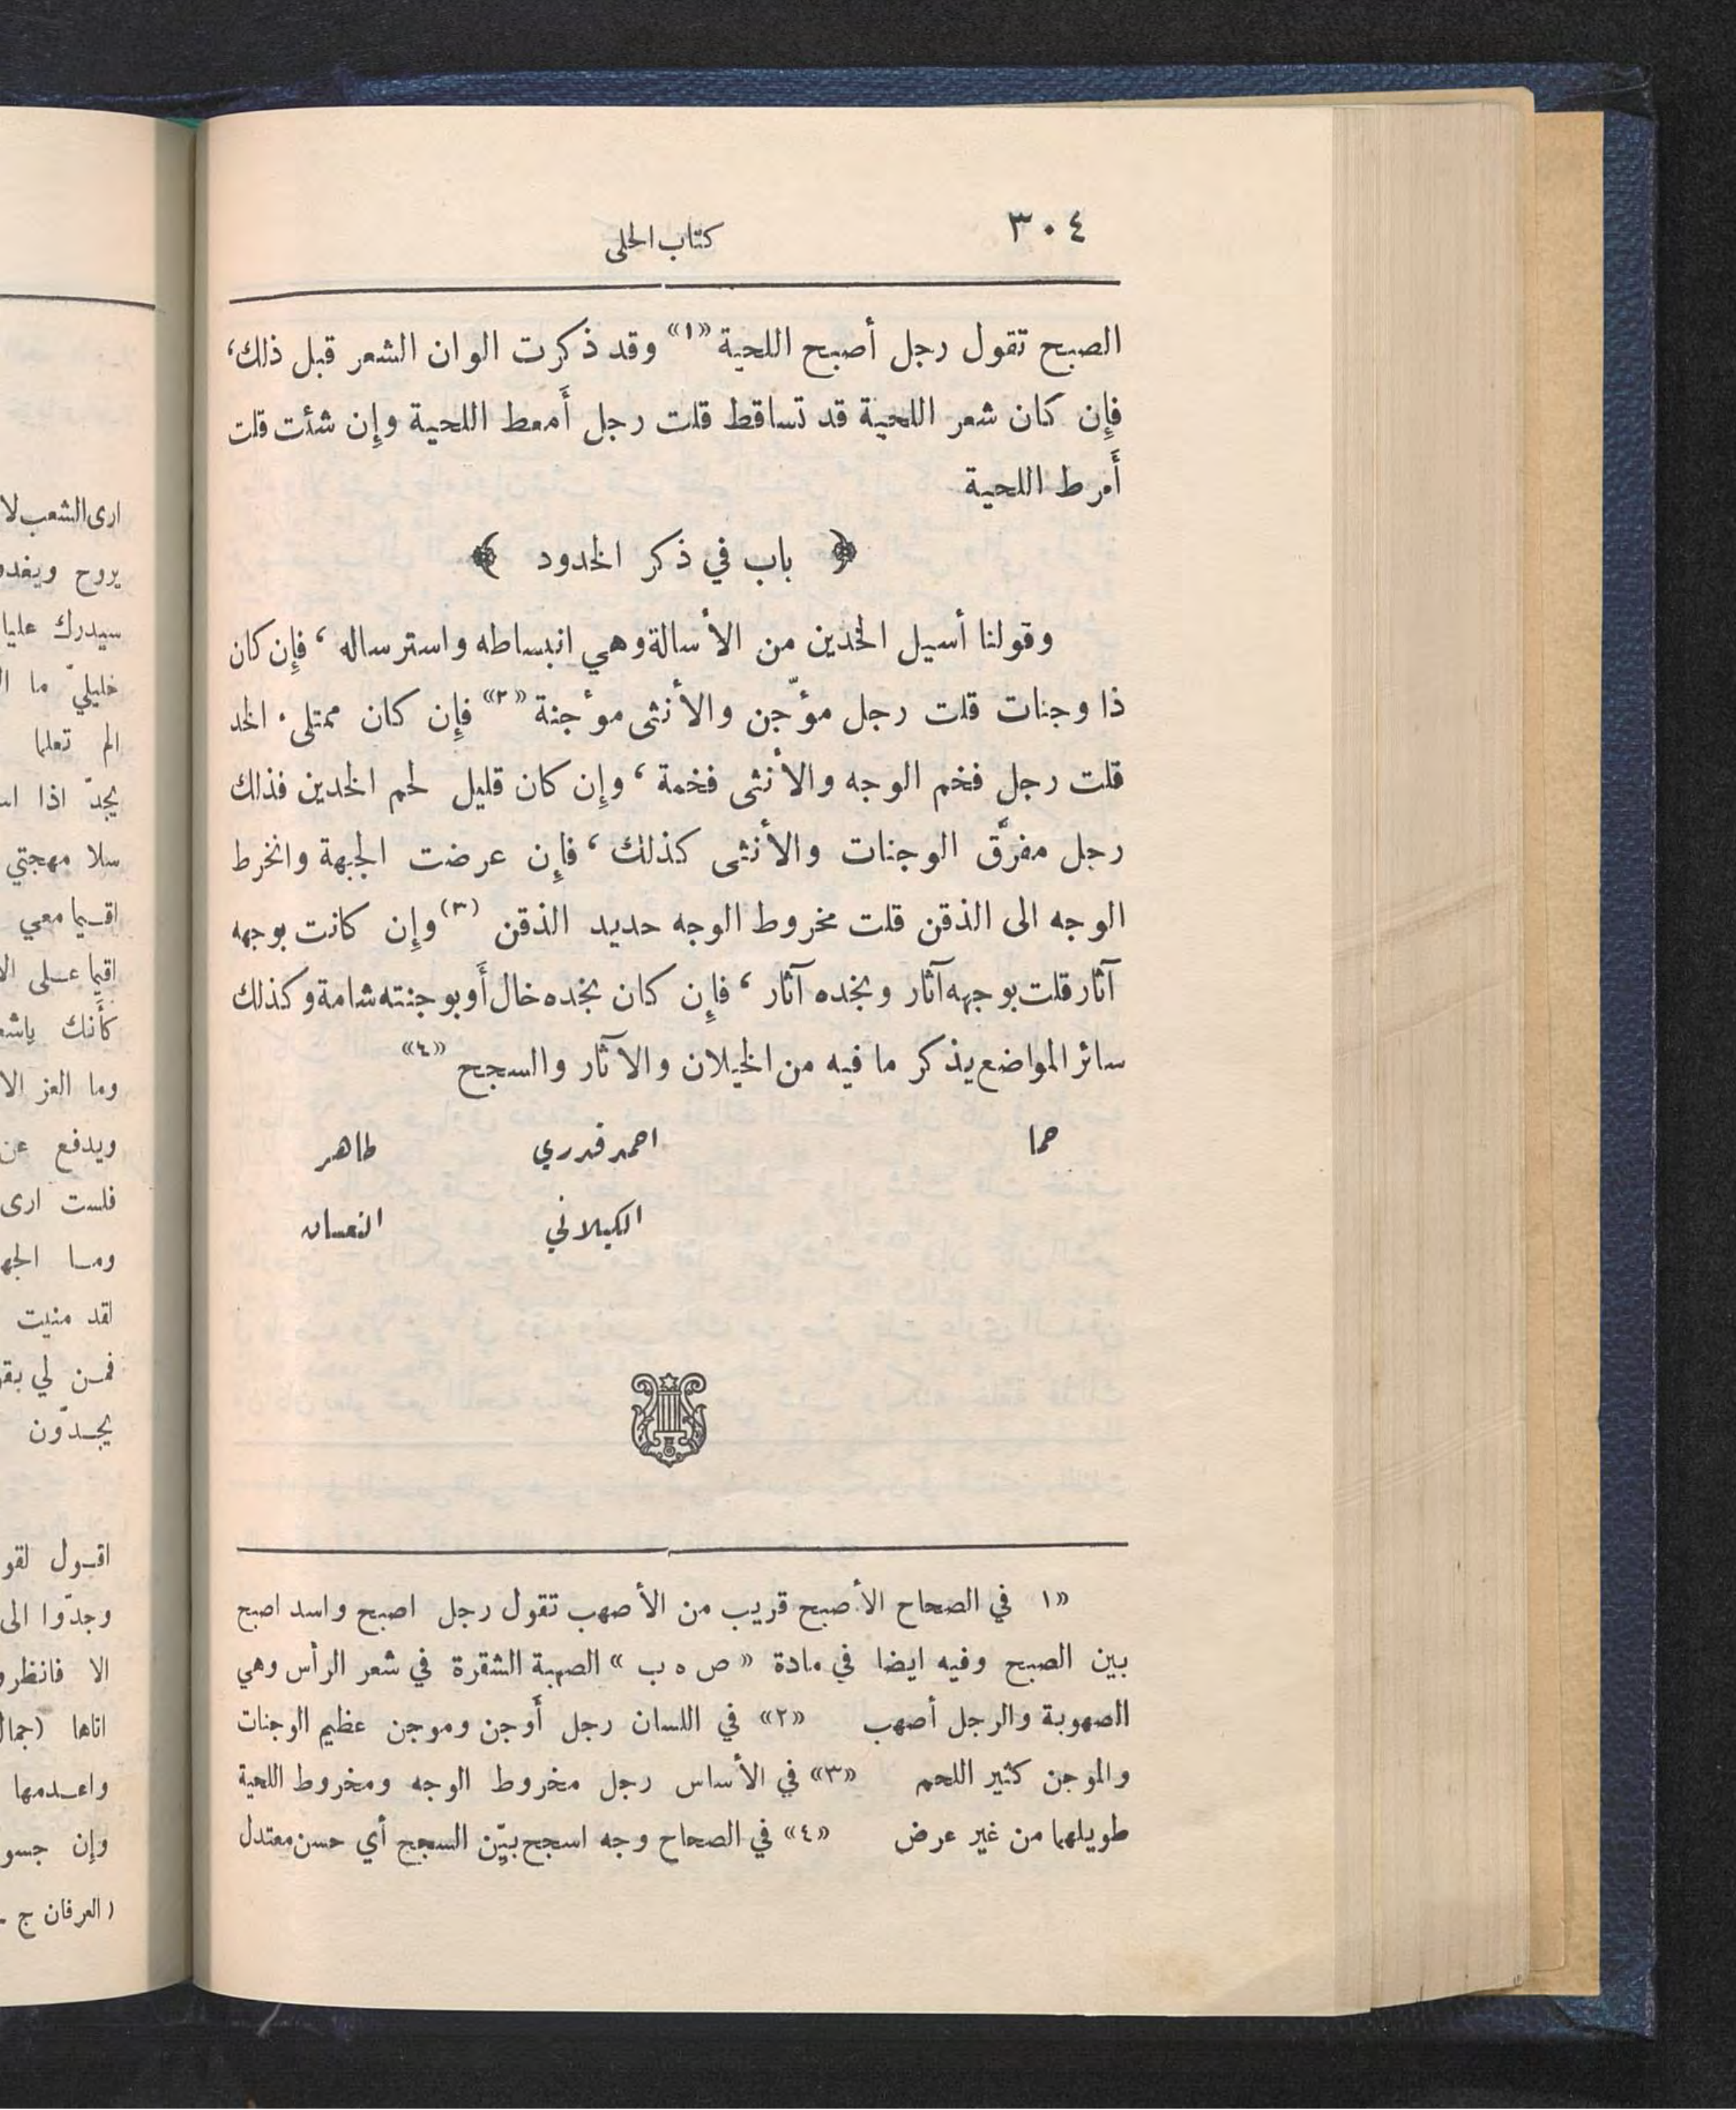 ٣٠٤
كتاب الحلى
الصبح تقول رجل أصبح اللحية «١» وقد ذكرت الوان الشعر قبل ذلك،
فإن كان شعر اللحية قد تساقط قلت رجل أَمعط اللحية وإن شئت قلت
أَمرط اللحية
﴿ باب في ذكر الخدود ﴾
وقولنا أسيل الخدين من الأسالة وهي انبساطه واسترساله، فإن كان
ذا وجنات قلت رجل مؤجّن والأنثى مؤجنة «٢» فإن كان ممتلىء الخد
قلت رجل فخم الوجه والأنثى فخمة، وإن كان قليل لحم الخدين فذلك
رجل مفرَّق الوجنات والأنثى كذلك، فإن عرضت الجبهة وانخرط
الوجه الى الذقن قلت مخروط الوجه حديد الذقن (٣) وإن كانت بوجهه
آثار قلت بوجهه آثار وبخده آثار، فإن كان بخده خال أَو بوجنته شامة وكذلك
سائر المواضع يذكر ما فيه من الخيلان والآثار والسجح «٤»
حما احمد قدري طاهر
الكيلاني النعسان
«١ في الصحاح الأصبح قريب من الأصهب تقول رجل اصبح واسد اصبح
بين الصبح وفيه ايضا في مادة « ص ه ب » الصهبة الشقرة في شعر الرأس وهي
الصهوبة والرجل أصهب «٢» في اللسان رجل أَوجن وموجن عظيم الوجنات
والموجن كثير اللحم «٣» في الأساس رجل مخروط الوجه ومخروط اللحية
طويلهما من غير عرض «٤» في الصحاح وجه اسجح بيّن السجح أي حسن معتدل
ارى الشعب لا
يروح ويغدو
سيدرك عليا
خليليّ ما
الم تعلما
يجدّ اذا
سلا مهجتي
اقيما معي
اقيما على
كأَنك
وما العز الا
ويدفع عن
فلست ارى
وما
لقد منيت
فمن لي
يجدّون
اقول
وجدّوا الى
الا فانظروا
اتاها
واعدمها
وإن
(العرفان ج